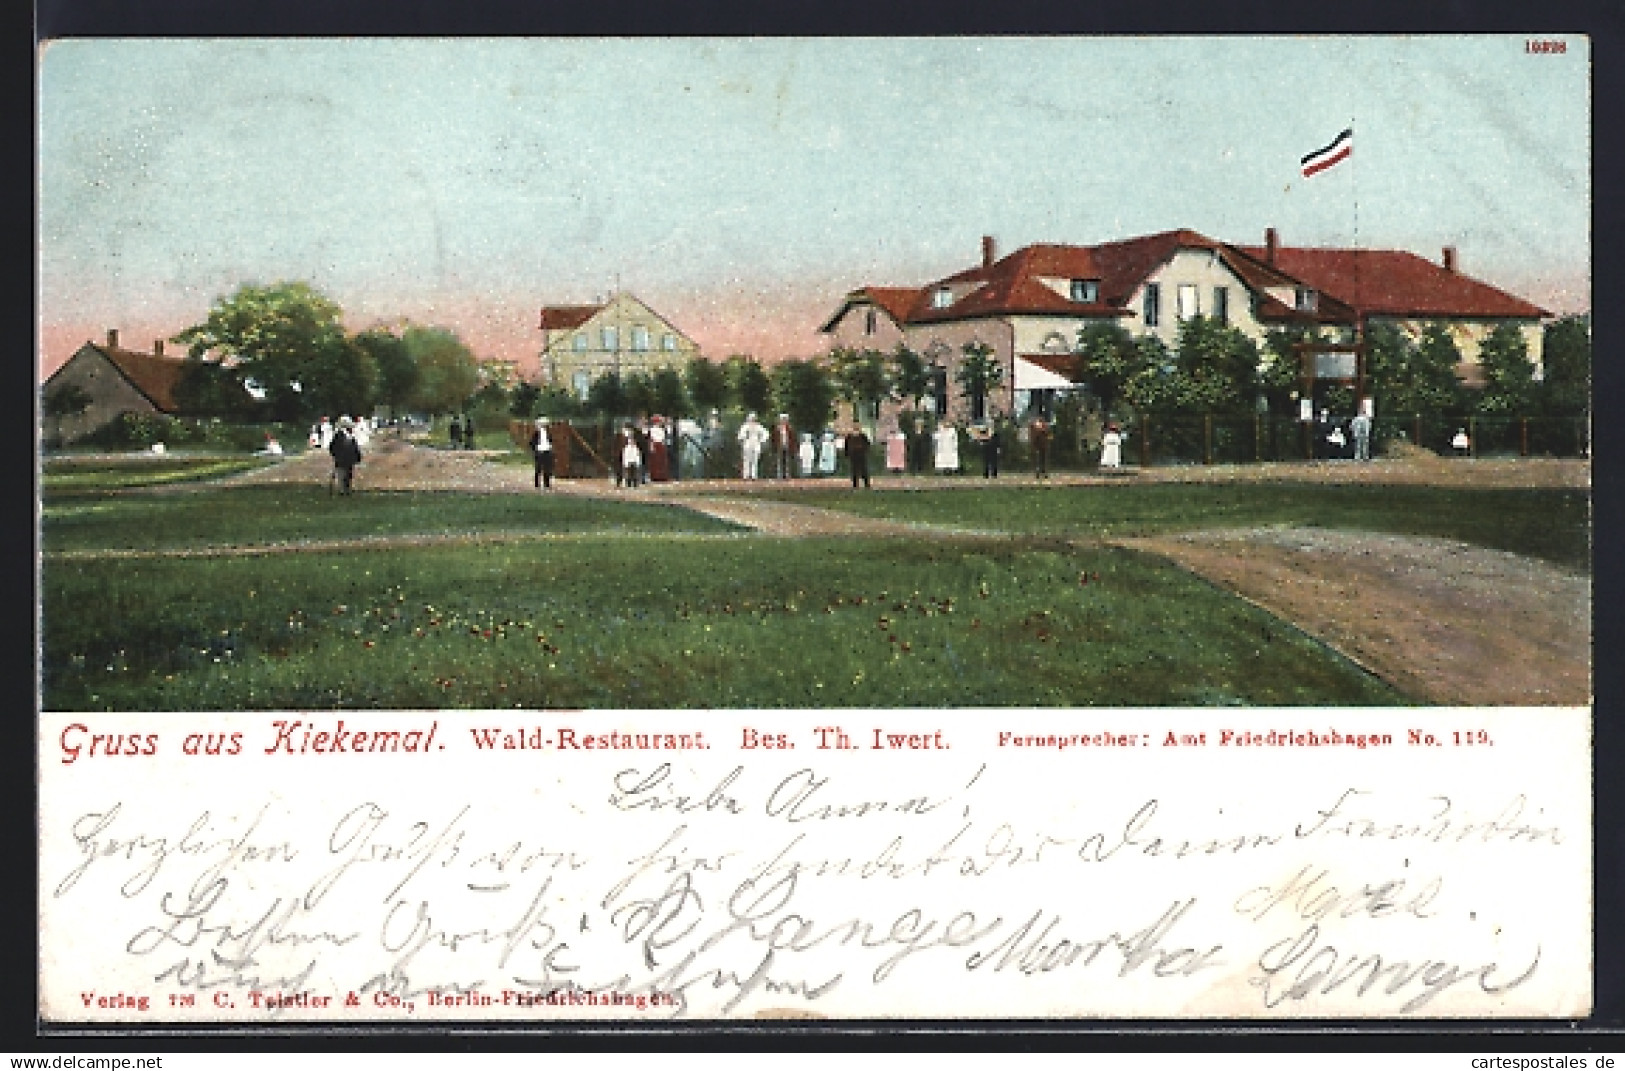 10326
Gruss aus Kiekemal. Wald-Restaurant. Bes. Th. Iwert. Fernsprecher: Amt Friedrichshagen No. 119.
Liebe Anna!
Herzlichen Gruß von hier sendet Dir Deine Freundin
Besten Gruß R Lange Martha Lange
Verlag C. Teistler & Co., Berlin-Friedrichshagen.
cartespostales de